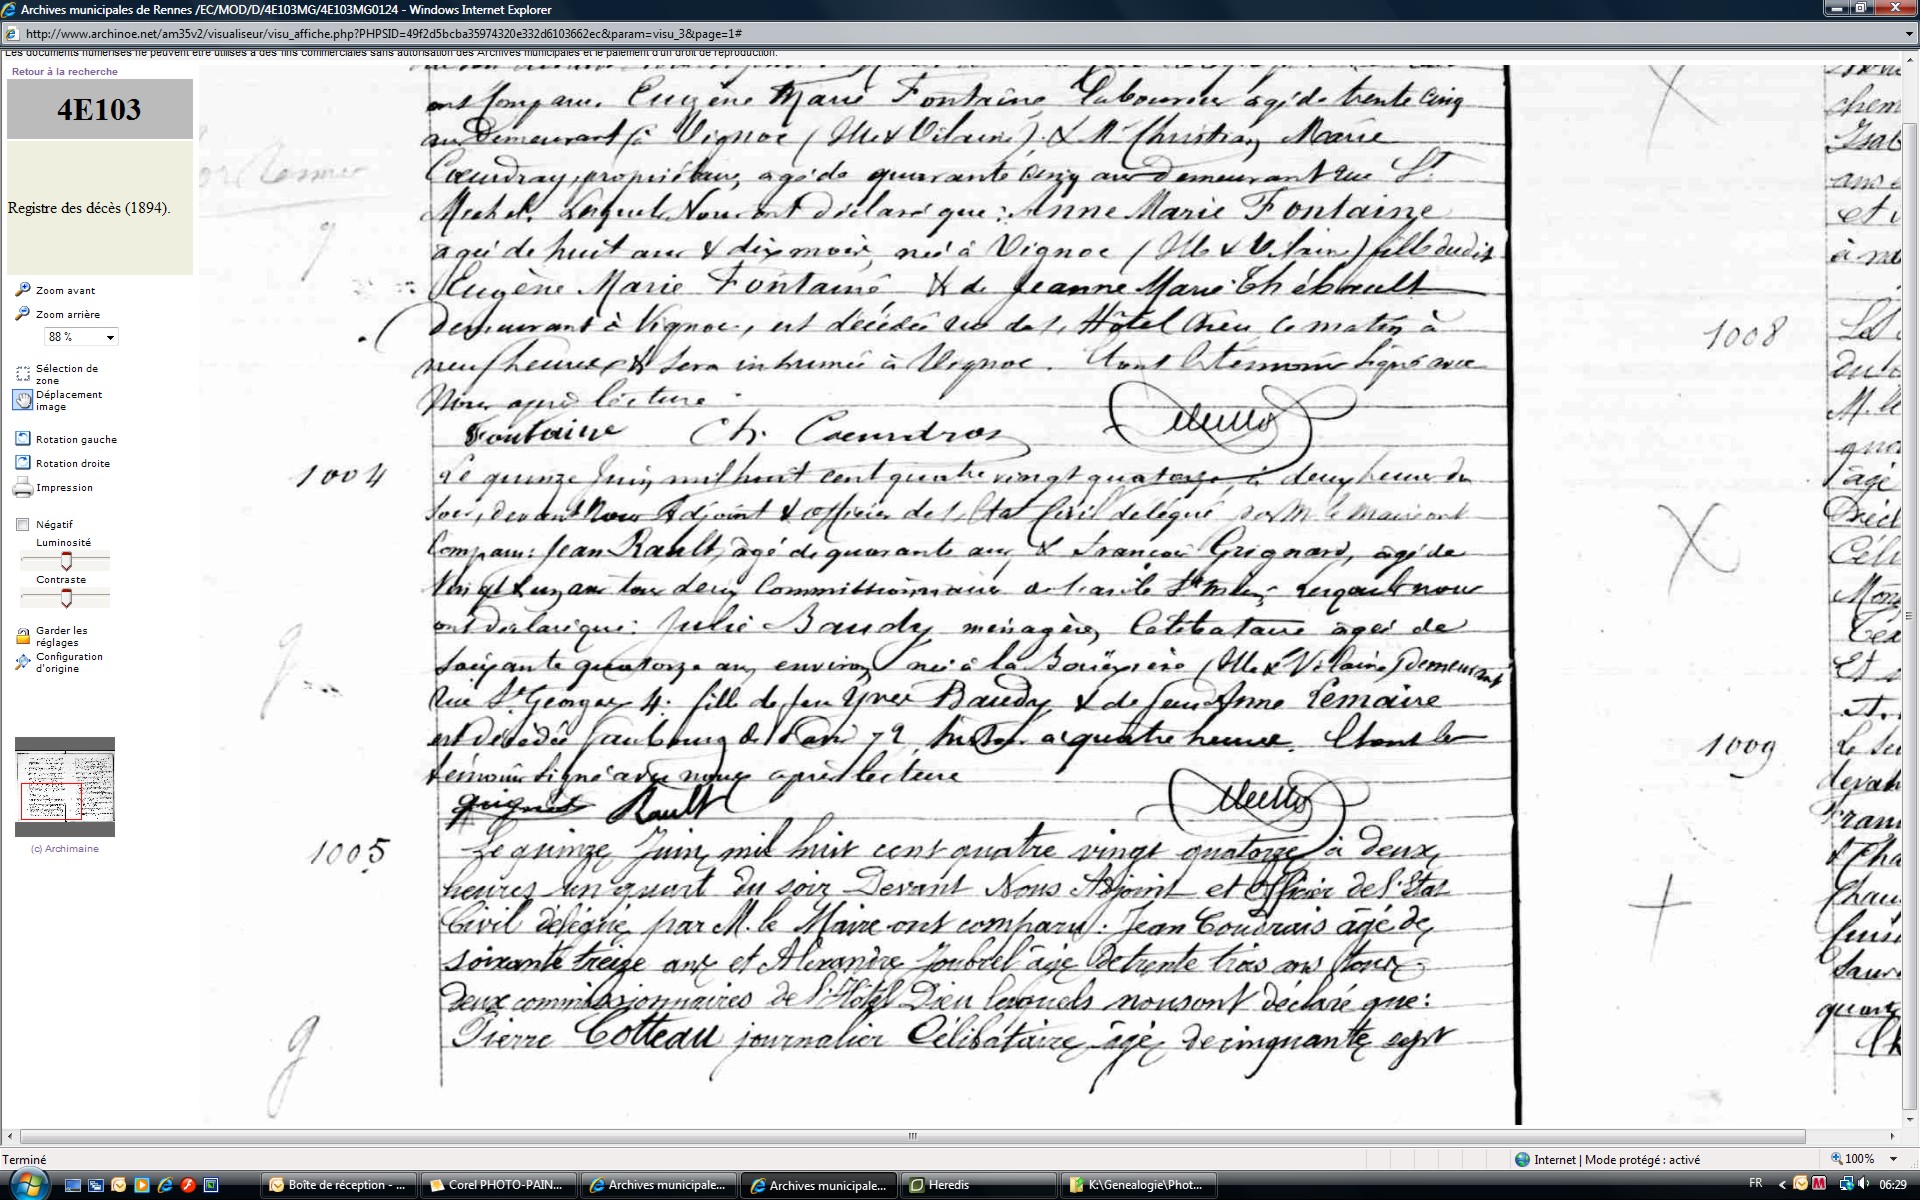 Archives municipales de Rennes /EC/MOD/D/4E103MG/4E103MG0124 - Windows Internet Explorer
http://www.archinoe.net/am35v2/visualiseur/visu_affiche.php?PHPSID=49f2d5bcba35974320e332d6103662ec&param=visu_3&page=1#
Les documents numérisés ne peuvent être utilisés à des fins commerciales sans autorisation des Archives municipales et le paiement d'un droit de reproduction.
Retour à la recherche
4E103
Registre des décès (1894).
Zoom avant
Zoom arrière
88 %
Sélection de
zone
Déplacement
image
Rotation gauche
Rotation droite
Impression
Négatif
Luminosité
Contraste
Garder les
réglages
Configuration
d'origine
(c) Archimaine
ont comparu. Eugène Marie Fontaine laboureur agé de trente cinq
ans demeurant à Vignoc (Ille & Vilaine) & Mr Christian Marie
Coeurdray, propriétaire, agé de quarante cinq ans demeurant rue St
Michel. Lesquels Nous ont déclaré que: Anne Marie Fontaine
agée de huit ans & dix mois, née à Vignoc (Ille & Vilaine) fille dudit
Eugène Marie Fontaine & de Jeanne Marie Thébault
demeurant à Vignoc, est décédée rue de l'Hôtel Dieu, ce matin à
neuf heures & sera inhumée à Vignoc. Et ont les témoins signé avec
Nous après lecture.
Fontaine Ch. Coeurdray
1004
Le quinze Juin mil huit cent quatre vingt quatorze, à deux heures du
soir, devant Nous Adjoint & officier de l'Etat Civil délégué par M. le Maire ont
comparu: Jean Rault, agé de quarante ans, & François Grignard, agé de
vingt & un ans tous deux Commissionnaires de l'asile St Méen, Lesquels nous
ont déclaré que: Julie Baudy ménagère, Célibataire agée de
soixante quatorze ans environ née à la Bouëxière (Ille & Vilaine) demeurant
rue St Georges 4. fille de feu Yves Baudy & de feue Anne Lemaire
est décédée faubourg de Paris 72, à quatre heures. Et ont les
témoins signé avec nous après lecture
Rault
1005
Le quinze Juin mil huit cent quatre vingt quatorze à deux
heures un quart du soir Devant Nous Adjoint et Officier de l'Etat
Civil délégué par M. le Maire ont comparu: Jean Coudrais âgé de
soixante treize ans et Alexandre Joubrel âgé de trente trois ans tous
deux commissionnaires de l'Hôtel Dieu lesquels nous ont déclaré que:
Pierre Cotteau journalier Célibataire âgé de cinquante sept
1008
1009
Terminé
Internet | Mode protégé : activé
100%
Boîte de réception - ...
Corel PHOTO-PAIN...
Archives municipale...
Archives municipale...
Heredis
K:\Genealogie\Phot...
FR
06:29